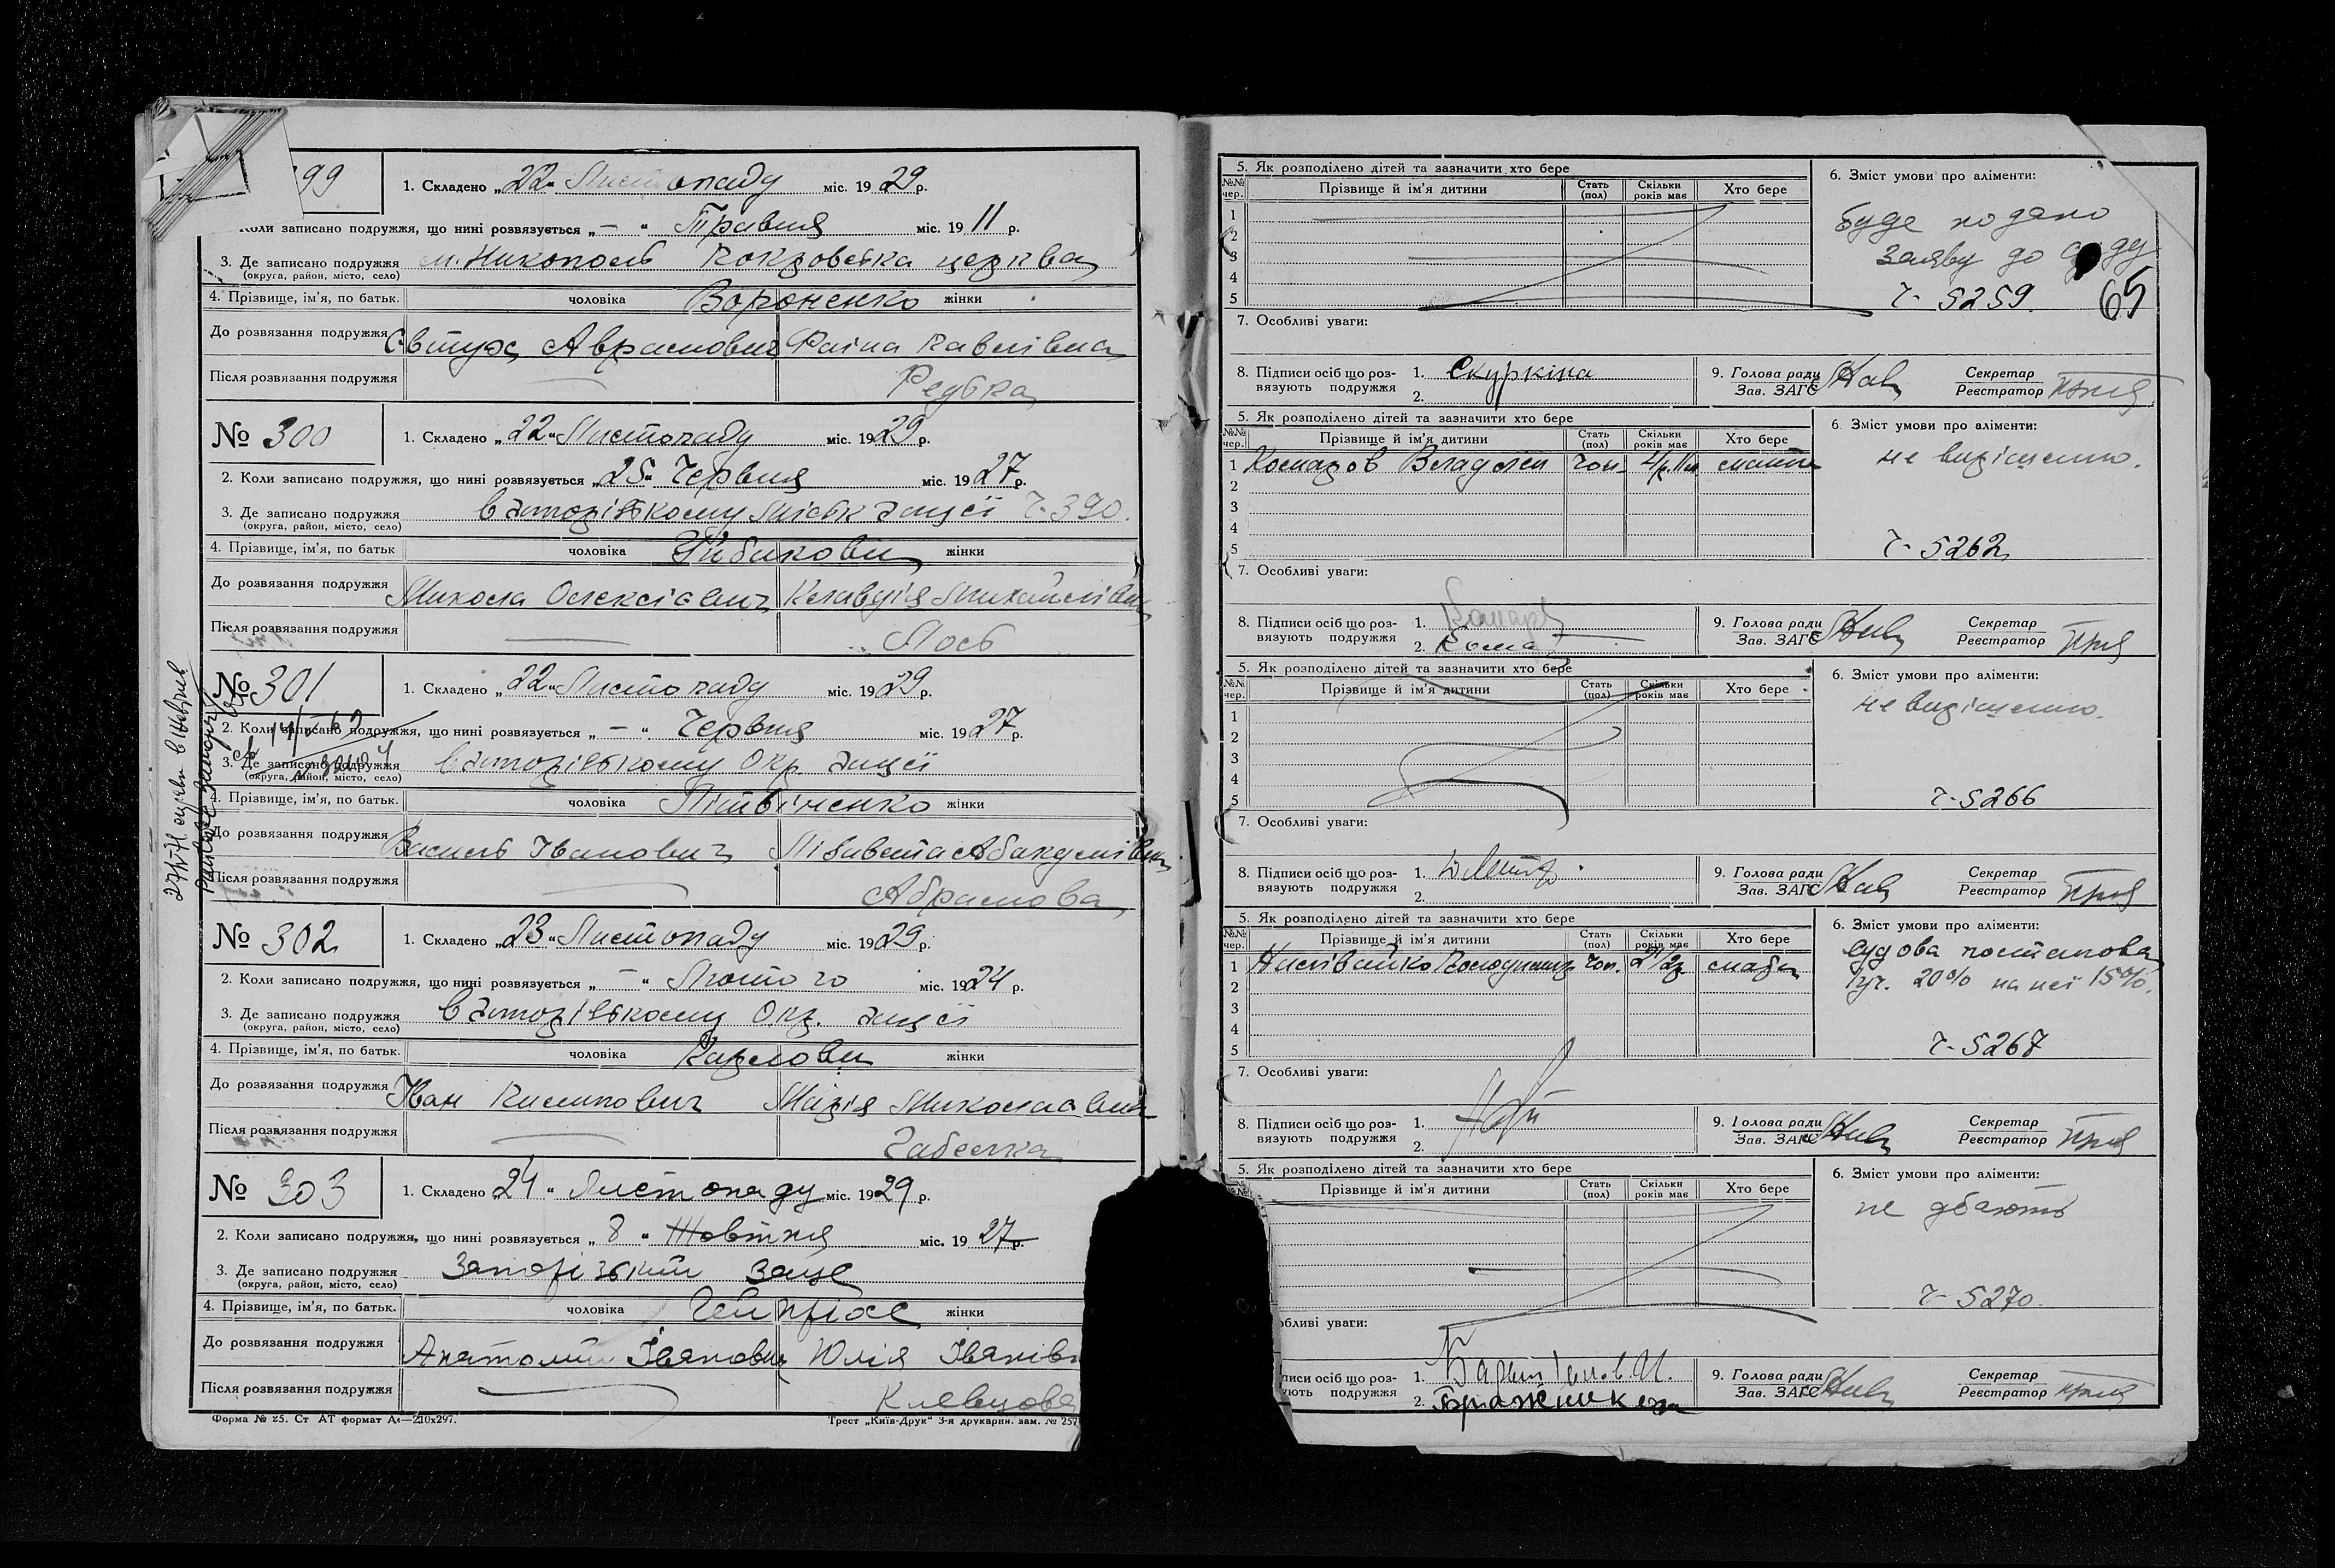 99
1. Складено „22“ Листопаду міс. 1929 р.
Коли записано подружжя, що нині розвязується „—“ Травня міс. 1911 р.
3. Де записано подружжя м. Никополь Покровська церква
(округа, район, місто, село)
4. Прізвище, ім'я, по батьк. чоловіка Вороненко жінки
До розвязання подружжя Євтух Аврамович Фаіна Павлівна
Після розвязання подружжя — Редька
№ 300
1. Складено „22“ Листопаду міс. 1929 р.
2. Коли записано подружжя, що нині розвязується „25“ Червня міс. 1927 р.
3. Де записано подружжя в Запорізькому Міськ Загсі ч-390.
(округа, район, місто, село)
4. Прізвище, ім'я, по батьк чоловіка жінки
До розвязання подружжя Микола Олексієвич Клавдія Михайлівна
Після розвязання подружжя — Лось
№ 301
1. Складено „22“ Листопаду міс. 1929 р.
2. Коли записано подружжя, що нині розвязується „—“ Червня міс. 1927 р.
3. Де записано подружжя в Запорізькому Окр. Загсі
(округа, район, місто, село)
4. Прізвище, ім'я, по батьк. чоловіка Літвіненко жінки
До розвязання подружжя Василь Іванович Лізавета Абакумівна
Після розвязання подружжя — Абрамова
№ 302
1. Складено „23“ Листопаду міс. 1929 р.
2. Коли записано подружжя, що нині розвязується „—“ Лютого міс. 1924 р.
3. Де записано подружжя в Запорізькому Окр. Загсі
(округа, район, місто, село)
4. Прізвище, ім'я, по батьк. чоловіка Карлови жінки
До розвязання подружжя Іван Пилипович Марія Миколаєвна
Після розвязання подружжя —
№ 303
1. Складено 24 “ Листопаду міс. 1929 р.
2. Коли записано подружжя, що нині розвязується „ 8 “ Жовтня міс. 1927 р.
3. Де записано подружжя Запорізький Загс
(округа, район, місто, село)
4. Прізвище, ім'я, по батьк. чоловіка жінки
До розвязання подружжя Анатолий Іванович Юлія Іванівн
Після розвязання подружжя — Клевцова
Форма № 25. Ст АТ формат А4—210х297.
Трест „Київ-Друк“ 3-я друкарня. зам. № 257
5. Як розподілено дітей та зазначити хто бере
6. Зміст умови про аліменти:
№№ чер. Прізвище й ім'я дитини Стать (пол) Скільки років має Хто бере
1
2
3
4
5
Буде подано
Заяву до суду
ч-5259.
65
7. Особливі уваги:
8. Підписи осіб що розвязують подружжя 1. Скуркіна
2.
9. Голова ради
Зав. ЗАГС
Секретар
Реєстратор
5. Як розподілено дітей та зазначити хто бере
6. Зміст умови про аліменти:
№№ чер. Прізвище й ім'я дитини Стать (пол) Скільки років має Хто бере
1 Комаров чол.
2
3
4
5
не вирішено.
ч-5262
7. Особливі уваги:
8. Підписи осіб що розвязують подружжя 1.
2. Кома
9. Голова ради
Зав. ЗАГС
Секретар
Реєстратор
5. Як розподілено дітей та зазначити хто бере
6. Зміст умови про аліменти:
№№ чер. Прізвище й ім'я дитини Стать (пол) Скільки років має Хто бере
1
2
3
4
5
не вирішено.
ч-5266
7. Особливі уваги:
8. Підписи осіб що розвязують подружжя 1.
2.
9. Голова ради
Зав. ЗАГС
Секретар
Реєстратор
5. Як розподілено дітей та зазначити хто бере
6. Зміст умови про аліменти:
№№ чер. Прізвище й ім'я дитини Стать (пол) Скільки років має Хто бере
1 Наливайко Володимир чол.
2
3
4
5
Судова постанова
20% на неї 15%.
ч-5267
7. Особливі уваги:
8. Підписи осіб що розвязують подружжя 1.
2.
9. Голова ради
Зав. ЗАГС
Секретар
Реєстратор
5. Як розподілено дітей та зазначити хто бере
6. Зміст умови про аліменти:
Прізвище й ім'я дитини Стать (пол) Скільки років має Хто бере
не дбають
ч-5270.
обливі уваги:
писи осіб що розвують подружжя 1.
2. Бражник
9. Голова ради
Зав. ЗАГС
Секретар
Реєстратор